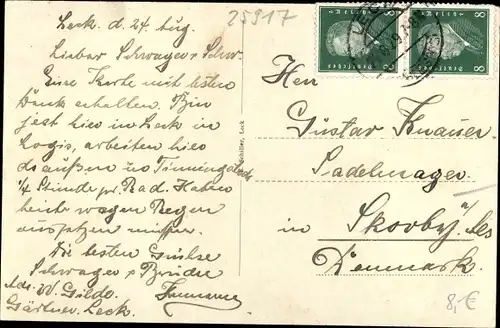 Leck. d. 24 Aug.
25917
Lieber Schwager u. Schw.
Eine Karte mit besten
Dank erhalten. Bin
jest hier in Leck in
Logis, arbeiten hier
draußen zo
1/4 Stunde pr. Rad. Haben
heute wegen Regen
aussetzen müssen.
Die besten Grüsse
Schwager u. Bruder
Adr. W. Gilde.
Gärtner. Leck.
8 8
Deutsches Reich
Herr
Gustav Knauer
Sadelmager
in Skovby a/ Als
Denmark.
8,€